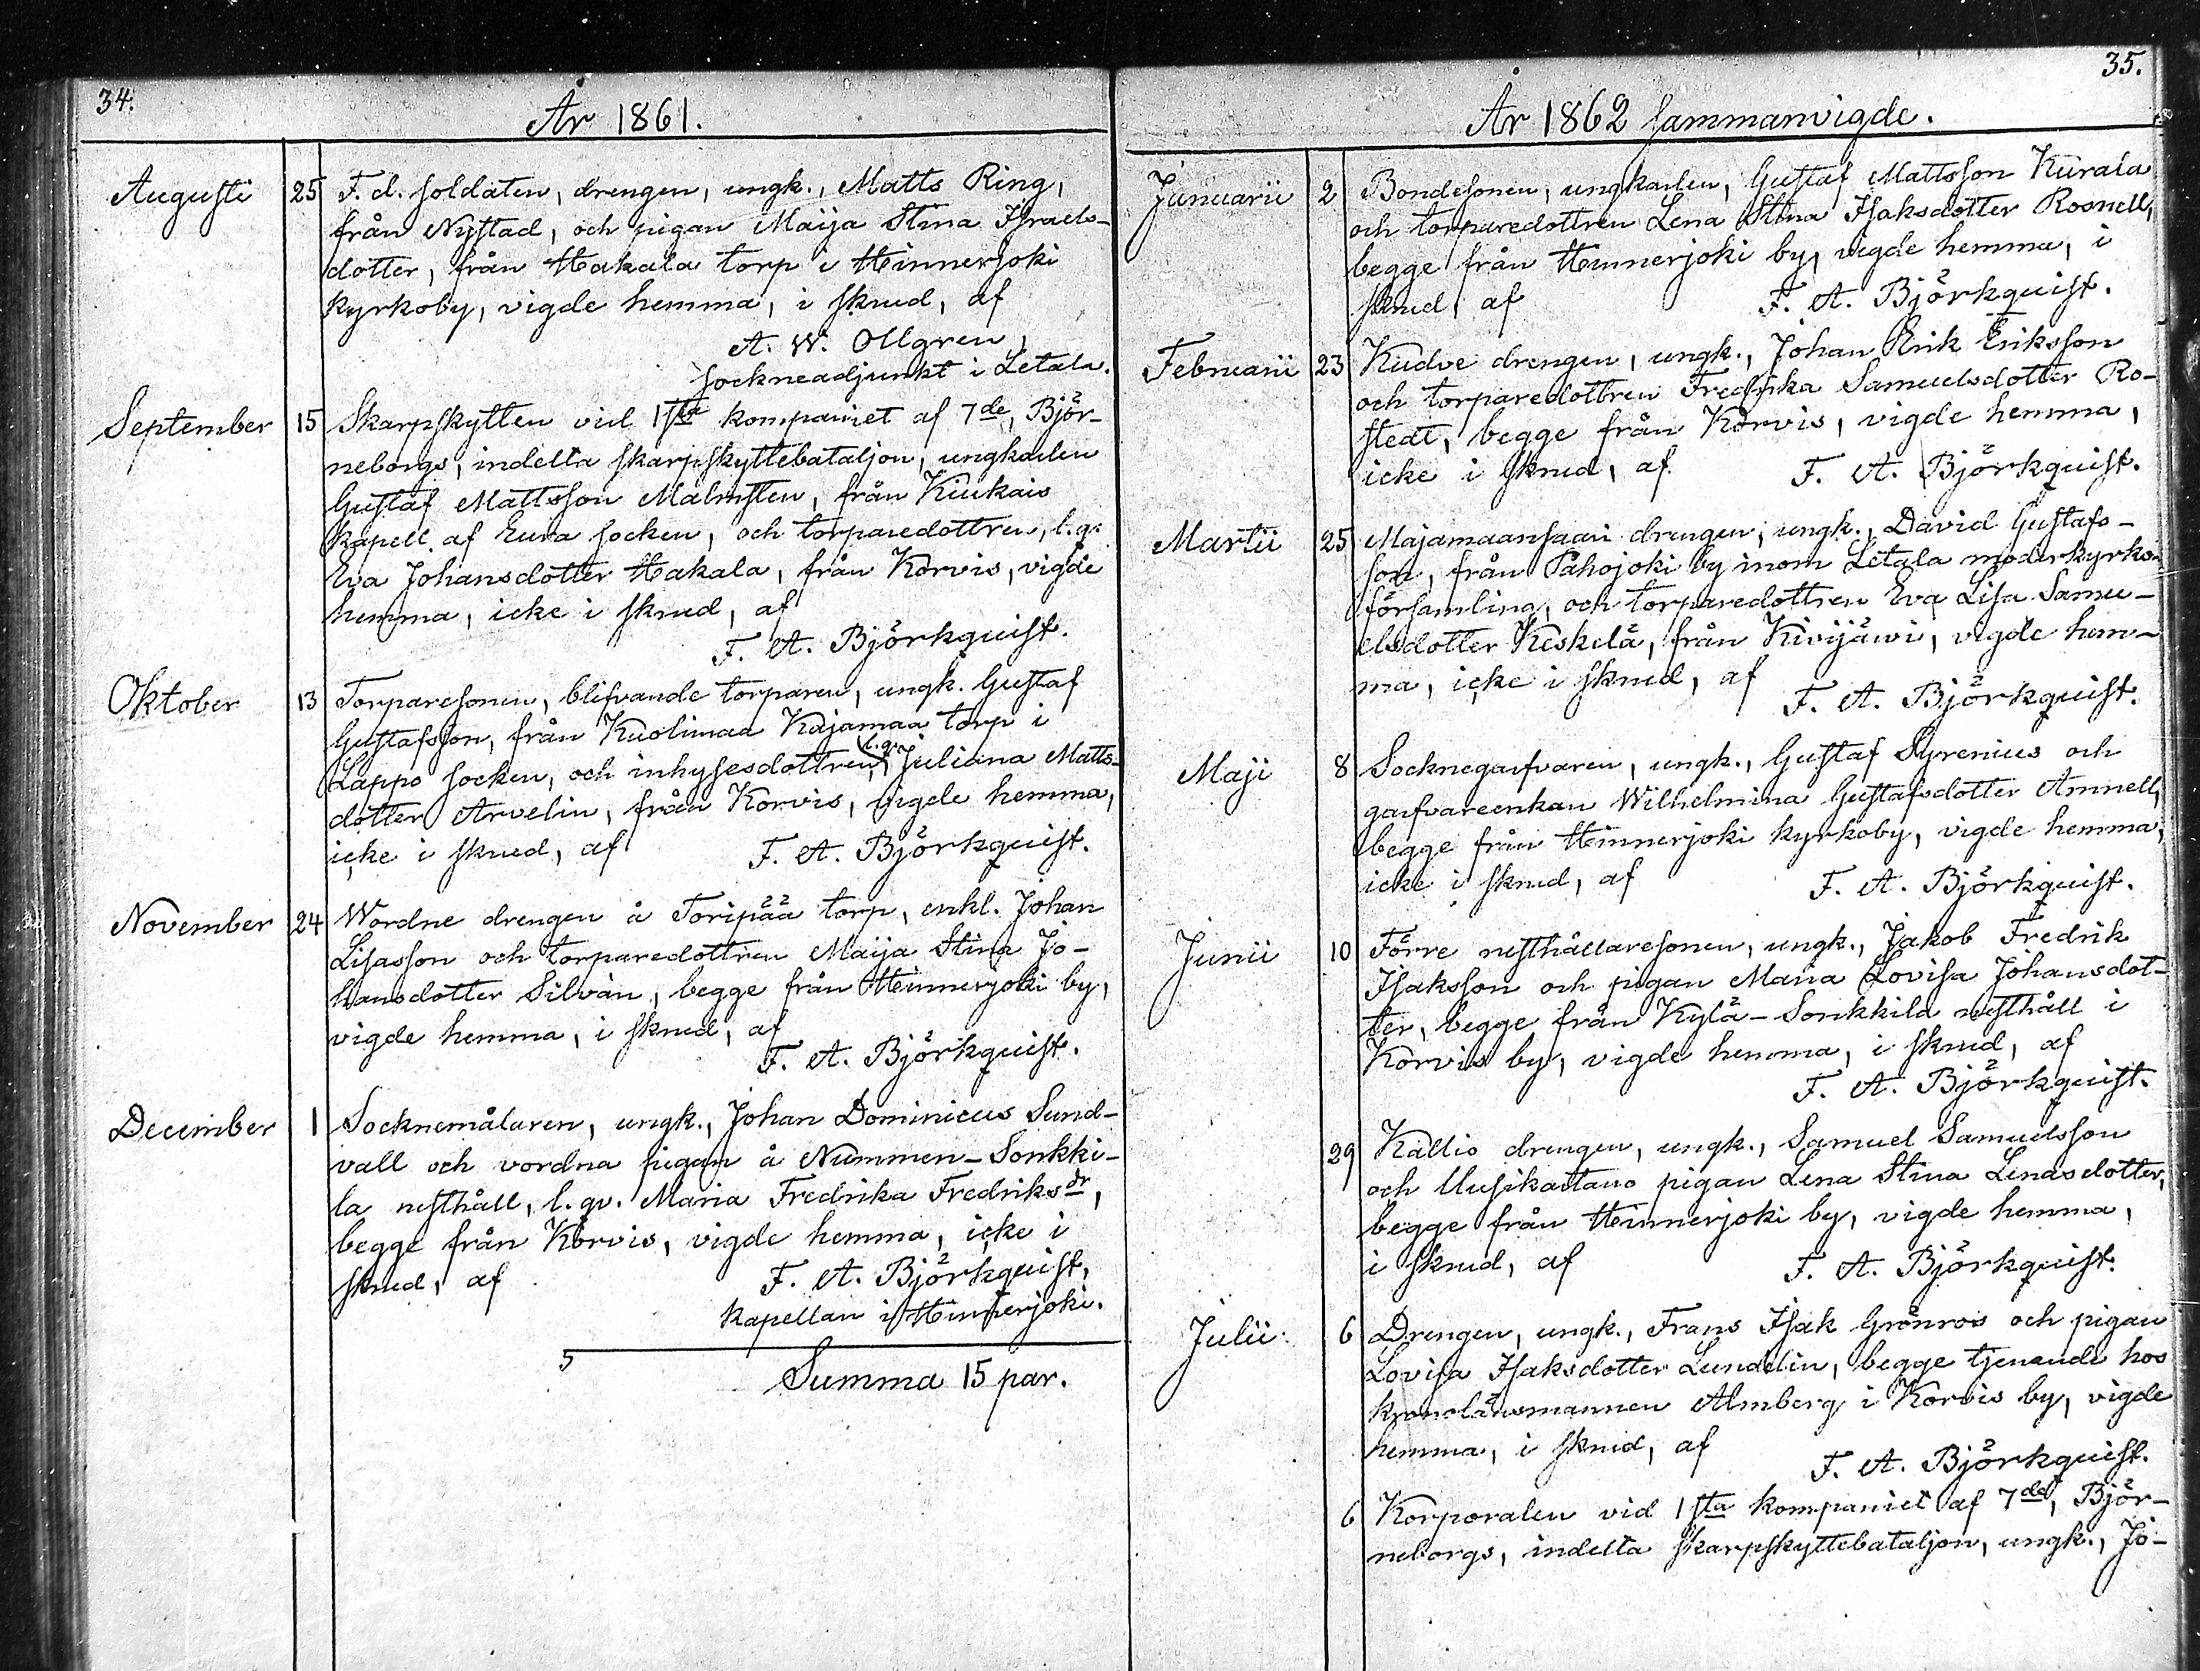 34.
År 1861.
Augusti 25 F. d. soldaten, drengen, ungk., Matts Ring,
från Nystad, och pigan Maija Stina Israels-
dotter, från Hakala torp i Hinnerjoki
kyrkoby, vigde hemma, i skrud, af
A. W. Ollgren,
sockneadjunkt i Letala.
September 15 Skarpskytten vid 1sta kompaniet af 7de, Björ-
neborgs, indelta skarpskyttebataljon, ungkarlen
Gustaf Mattsson Malmsten, från Kiukais
kapell af Eura socken, och torparedottren, l. q.
Eva Johansdotter Hakala, från Korvis, vigde
hemma, icke i skrud, af
F. A. Björkquist.
Oktober 13 Torparesonen, blifvande torparen, ungk. Gustaf
Gustafsson, från Kuolimaa Kajamaa torp i
Lappo socken, och inhysesdottren, l. q. Juliana Matts-
dotter Arvelin, från Korvis, vigde hemma,
icke i skrud, af F. A. Björkquist.
November 24 Wordne drengen å Toripää torp, enkl. Johan
Lisasson och torparedottren Maija Stina Jo-
hansdotter Silván, begge från Hinnerjoki by,
vigde hemma, i skrud, af
F. A. Björkquist.
December 1 Socknemålaren, ungk., Johan Dominicus Sund-
vall och vordna pigan å Nummen-Sonkki-
la rusthåll, l. qv. Maria Fredrika Fredriksdr,
begge från Korvis, vigde hemma, icke i
skrud, af F. A. Björkquist,
kapellan i Hinnerjoki.
5
Summa 15 par.
35.
År 1862 sammanvigde.
Januarii 2 Bondesonen, ungkarlen, Gustaf Mattsson Kurala
och torparedottren Lena Stina Isaksdotter Rosnell,
begge från Hinnerjoki by, vigde hemma, i
skrud, af F. A. Björkquist.
Februarii 23 Kudve drengen, ungk., Johan Erik Eriksson
och torparedottren Fredrika Samuelsdotter Ro-
stedt, begge från Korvis, vigde hemma,
icke i skrud, af F. A. Björkquist.
Martii 25 Majamaansaari drengen, ungk., David Gustafs-
son, från Pahojoki by inom Letala moderkyrko-
församling, och torparedottren Eva Lisa Samu-
elsdotter Keskilä, från Kivijäwi, vigde hem-
ma, icke i skrud, af F. A. Björkquist.
Maji 8 Socknegarfvaren, ungk., Gustaf Syrenius och
garfvareenkan Wilhelmina Gustafsdotter Amnell,
begge från Hinnerjoki kyrkoby, vigde hemma,
icke i skrud, af F. A. Björkquist.
Junii 10 Förre rusthållaresonen, ungk., Jakob Fredrik
Isaksson och pigan Maria Lovisa Johansdot-
ter, begge från Kylä-Sonkkila rusthåll i
Korvis by, vigde hemma, i skrud, af
F. A. Björkquist.
29 Kallio drengen, ungk., Samuel Samuelsson
och Uusikartano pigan Lena Stina Lenasdotter,
begge från Hinnerjoki by, vigde hemma,
i skrud, af F. A. Björkquist.
Julii 6 Drengen, ungk., Frans Isak Grönroos och pigan
Lovisa Isaksdotter Lundelin, begge tjenande hos
kronolänsmannen Almberg i Korvis by, vigde
hemma, i skrud, af F. A. Björkquist.
6 Korporalen vid 1sta kompaniet af 7de, Björ-
neborgs, indelta skarpskyttebataljon, ungk., Jo-